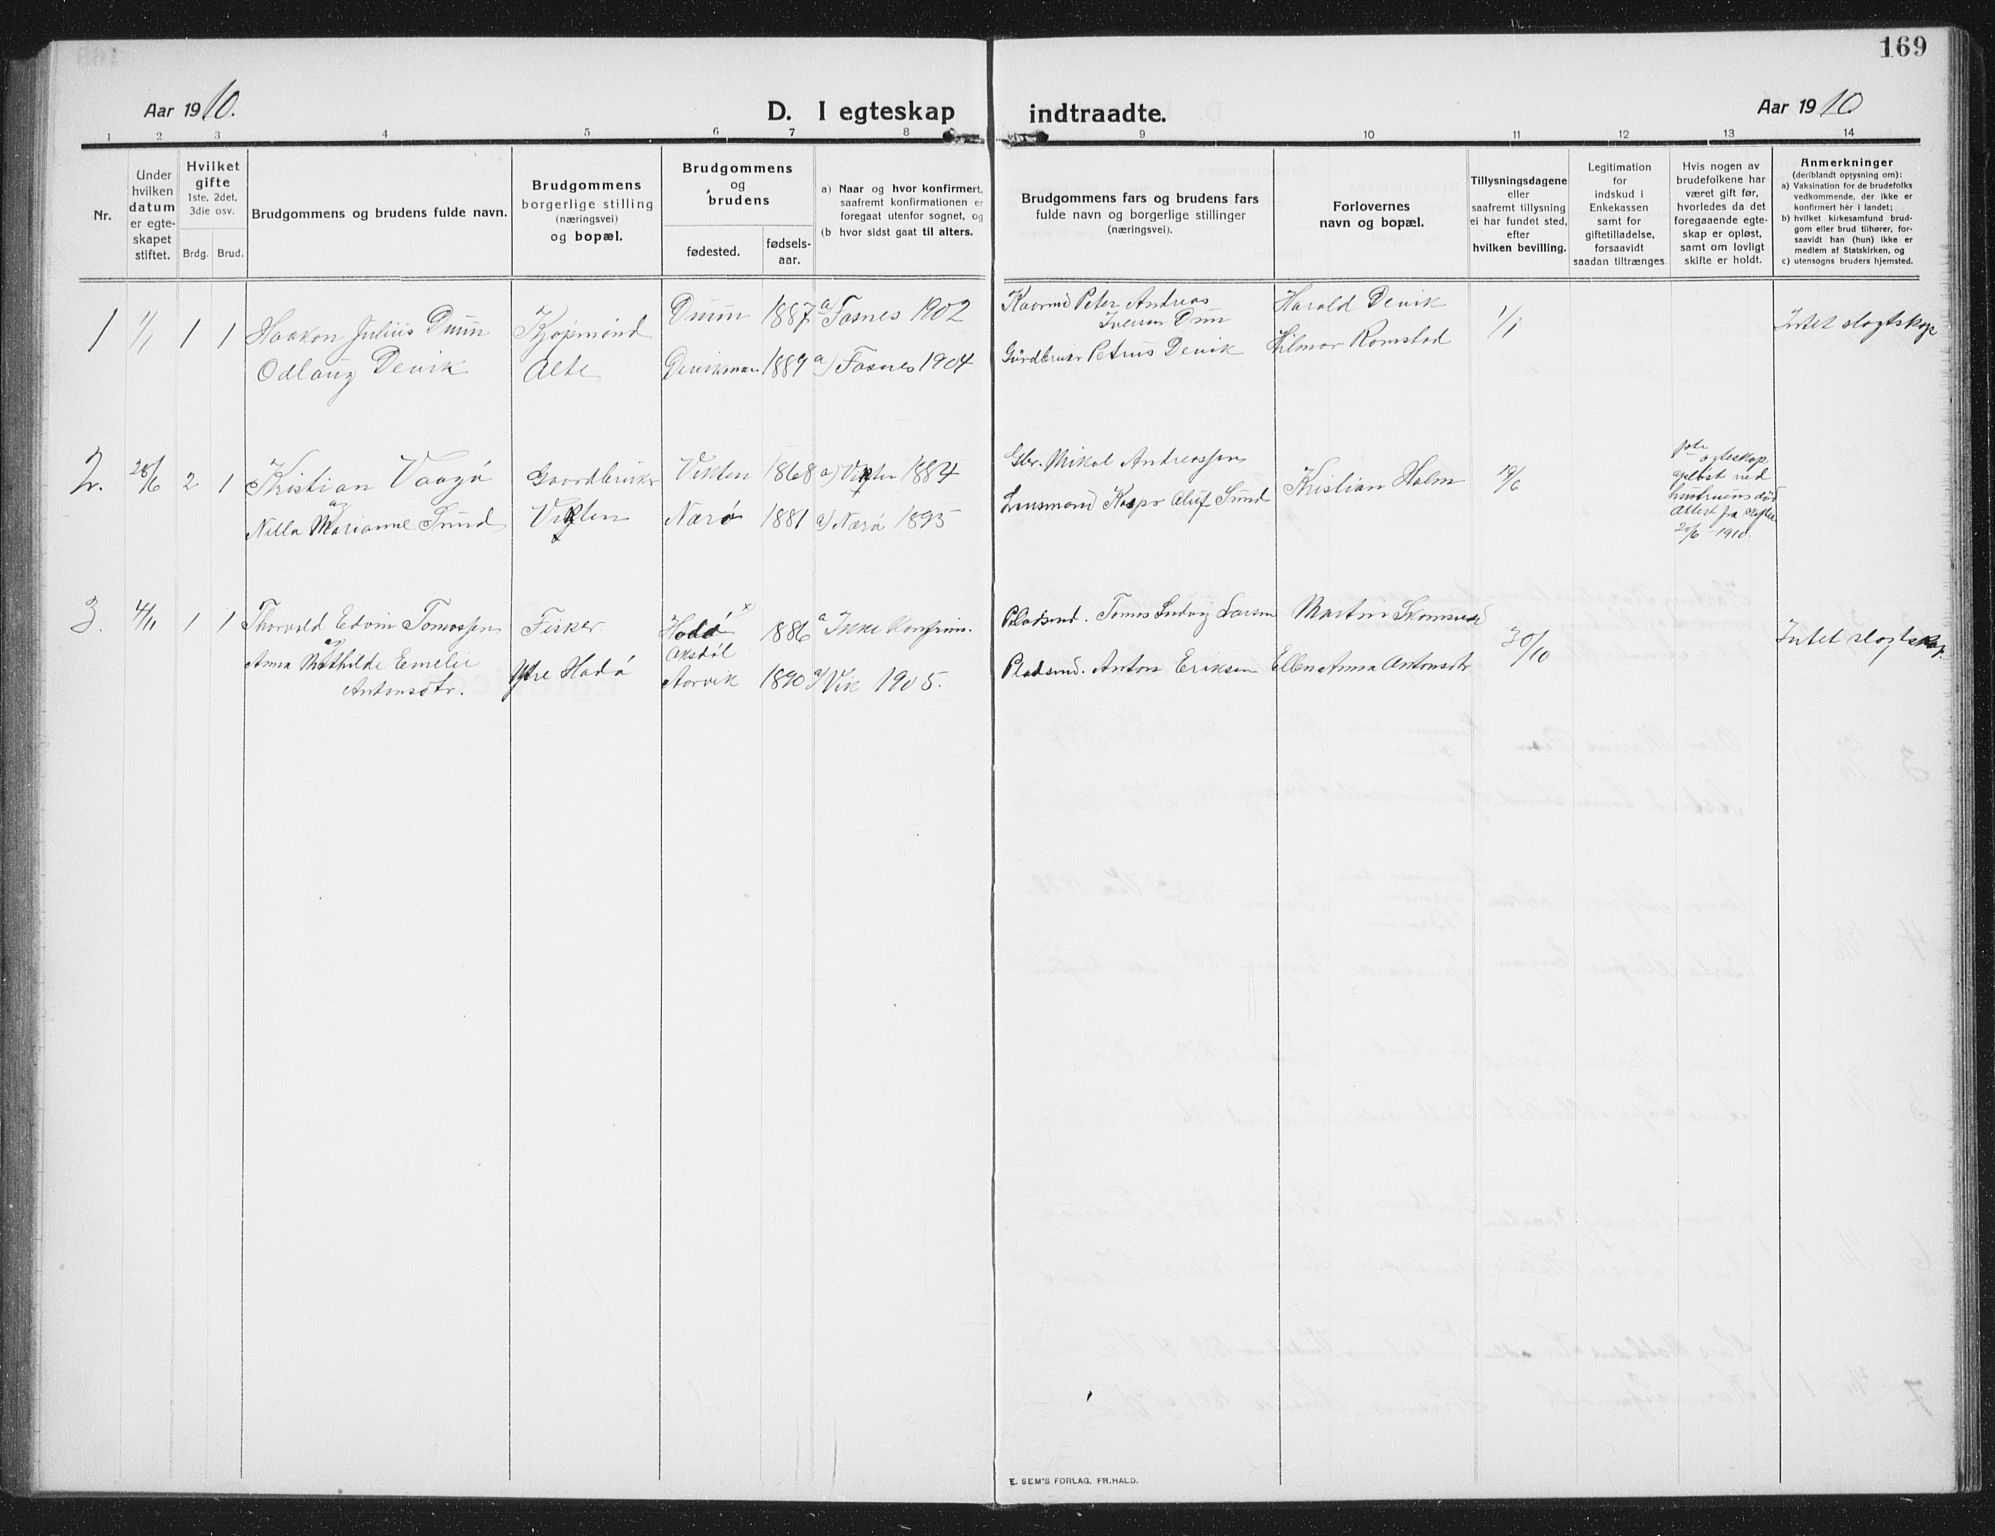 169
Aar 1910.
D. I egteskap indtraadte.
Aar 1910
1 2 3 4 5 6 7 8 9 10 11 12 13 14
Nr.
Under hvilken datum er egte- skapet stiftet.
Hvilket gifte
1ste, 2det, 3die osv.
Brdg. Brud.
Brudgommens og brudens fulde navn.
Brudgommens borgerlige stilling (næringsvei) og bopæl.
Brudgommens og brudens
fødested.
fødsels- aar.
a) Naar og hvor konfirmert, saafremt konfirmationen er foregaat utenfor sognet, og
(b hvor sidst gaat til alters.
Brudgommens fars og brudens fars fulde navn og borgerlige stillinger (næringsvei).
Forlovernes navn og bopæl.
Tillysningsdagene eller saafremt tillysning ei har fundet sted, efter hvilken bevilling.
Legitimation for indskud i Enkekassen samt for giftetilladelse, forsaavidt saadan tiltrænges
Hvis nogen av brudefolkene har været gift før, hvorledes da det foregaaende egte- skap er opløst, samt om lovligt skifte er holdt.
Anmerkninger
(deriblandt opjysning om):
a) Vaksination for de brudefolks vedkommende, der ikke er konfirmert her i landet;
b) hvilket kirkesamfund brud- gom eller brud tilhører, for- saavidt han (hun) ikke er medlem af Statskirken, og
c) utensogns bruders hjemsted.
1 1/1 1 1 Haakon Julius Duun Kjøpmand Duun 1887 a) Fosnes 1902 Peter Andreas Harald Devik 1/1 Intet slegtskap
Iversen Duun
Odlaug Devik Alte 1889 a) Fosnes 1904 Gårdbruker Petrus Devik Hilmar Romstad
2. 28/6 2 1 Kristian Vaagø Gaardbruker Vikten 1868 a) Vikten 1884 Gbr. Mikal Andreassen Kristian Holm 19/6 1ste egteskap opløst ved hustruens død Attest fra skifter 20/6-1910.
og
Nilla Marianne Sund Vikten Nærø 1881 a) Nærø 1895 Lensmand Kaspr Oluf Sund
3. 4/11 1 1 Thorvald Edvin Tomassen Fisker Hadø x 1886 a Ikke Konfirm. Pladsmd. Tomas Ludvig Larsen Martin 30/10 Intet slegtskap.
og Oksdøl
Anna Mathilde Emelie Ytre Hadø Aarvik 1890 a) Vik 1905. Pladsmd. Anton Eriksen Ellen Anna Antonsdtr
Antonsdtr.
E. SEM'S FORLAG, FR.HALD.